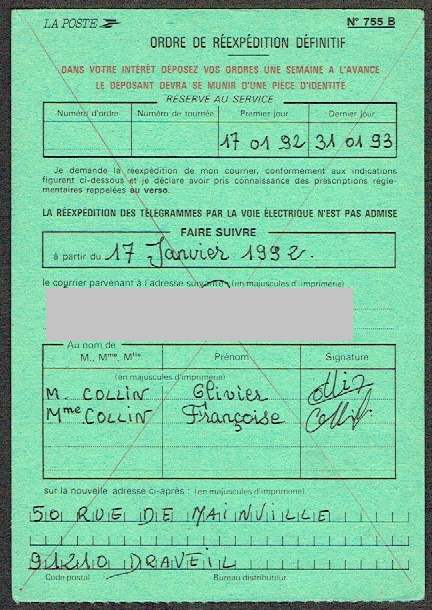 LA POSTE
N° 755 B
ORDRE DE RÉEXPÉDITION DÉFINITIF
DANS VOTRE INTÉRÊT DÉPOSEZ VOS ORDRES UNE SEMAINE A L'AVANCE
LE DÉPOSANT DEVRA SE MUNIR D'UNE PIÈCE D'IDENTITÉ
RÉSERVÉ AU SERVICE
Numéro d'ordre Numéro de tournée Premier jour Dernier jour
17 01 92 31 01 93
Je demande la réexpédition de mon courrier, conformément aux indications
figurant ci-dessous et je déclare avoir pris connaissance des prescriptions régle-
mentaires rappelées au verso.
LA RÉEXPÉDITION DES TÉLÉGRAMMES PAR LA VOIE ÉLECTRIQUE N'EST PAS ADMISE
FAIRE SUIVRE
à partir du 17 Janvier 1992.
le courrier parvenant à l'adresse suivante (en majuscules d'imprimerie)
Au nom de
M., Mme, Mlle Prénom Signature
(en majuscules d'imprimerie)
M. COLLIN Olivier
Mme COLLIN Françoise
sur la nouvelle adresse ci-après : (en majuscules d'imprimerie)
50 RUE DE MAINVILLE
91210 DRAVEIL
Code postal Bureau distributeur